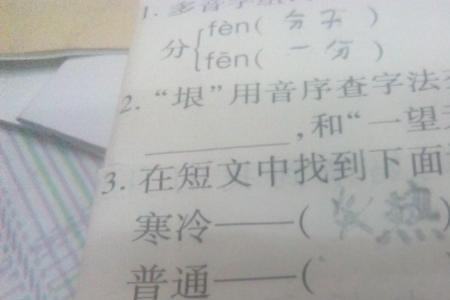 1. 多音字组
分 fèn( 分子 )
fēn( 一分 )
2. “垠”用音序查字法
______,和“一望
3. 在短文中找到下面
寒冷——( 炎热 )
普通——(